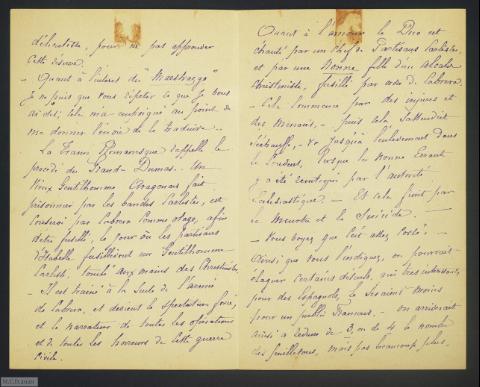 délicatesse, pour ne pas apprécier
cette oeuvre.
- Quant à l'auteur du "Maestrazgo"
Je ne puis que vous répéter ce que je vous
ai dit; cela m'a empoigné au point de
me donner l'envie de la traduire.
La trame Romanesque rappelle le
procédé du Grand Dumas. Un
Vieux Gentilhomme Aragonais fait
prisonnier par les bandes Carlistes, est
conservé par Cabrera comme otage, afin
d'être fusillé, le jour où les partisans
d'Isabelle fusilleront un Gentilhomme
Carliste, tombé aux mains des Christinistes
- Il est traîné à la suite de l'armée
de Cabrera, et devient le spectateur forcé,
et le narrateur de toutes les opérations
et de toutes les horreurs de cette guerre
Civile.
Quant à l'amour le Duo est
chanté par un Chef de Partisans Carlistes
et par une Nonne fille d'un Alcade
Christiniste, fusillé par ordre de Cabrera
- Cela commence par des injures et
des menaces, - puis cela s'attendrit
s'échauffe, - va jusqu'à l'enlèvement dans
le Couvent, lorsque la Nonne Errante
y a été réintégrée par l'autorité
Ecclésiastique. - Et cela finit par
le Meurtre et le Suicide. -
- Vous voyez que c'est assez corsé. -
Ainsi que vous l'indiquez, on pourrait
élaguer certains détails, qui très intéressants
pour des Espagnols, le seraient moins
pour un public Français. - on arriverait
ainsi à réduire de 3, ou de 4 le nombre
des feuilletons, mais pas beaucoup plus.
M.C.Bonnin